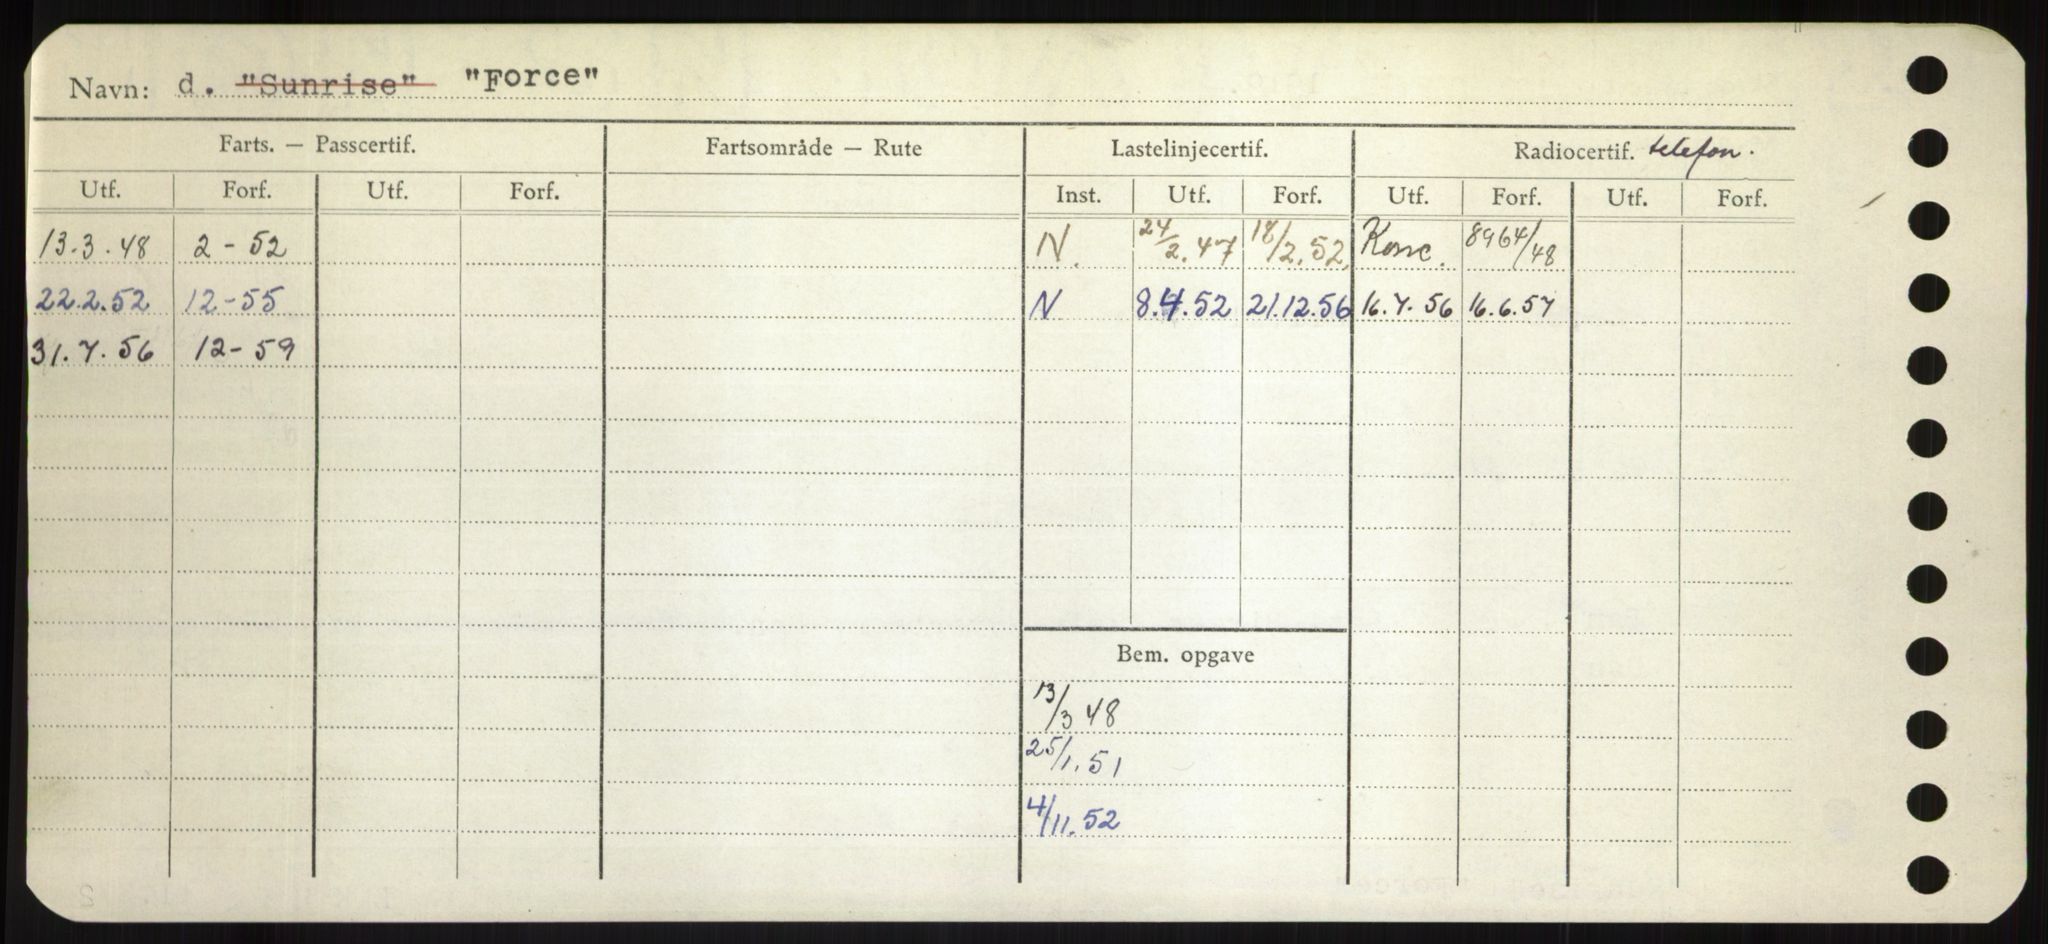 Navn: d. "Sunrise" "Force"
Farts. — Passcertif. Fartsområde — Rute Lastelinjecertif. Radiocertif. telefon.
Utf. Forf. Utf. Forf. Inst. Utf. Forf. Utf. Forf. Utf. Forf.
13.3.48 2-52 N. 24/2.47 18/2.52. Konc. 8964/48
22.2.52 12-55 N 8.4.52 21.12.56 16.7.56 16.6.57
31.7.56 12-59
Bem. opgave
13/3 48
25/1.51
4/11.52